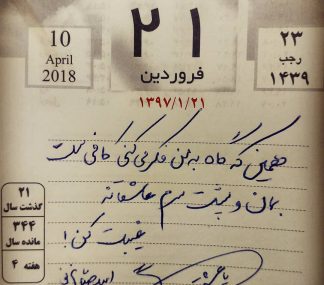 10
April
2018
۲۱
فروردین
۱۳۹۷/۱/۲۱
۲۳
رجب
۱۴۳۹
همین که گاه به من فکر می کنی کافی ست
بمان و پشت سرم عاشقانه
غیبت کن!
۲۱
گذشت سال
۳۴۴
مانده سال
هفته ۴
امید صباغی